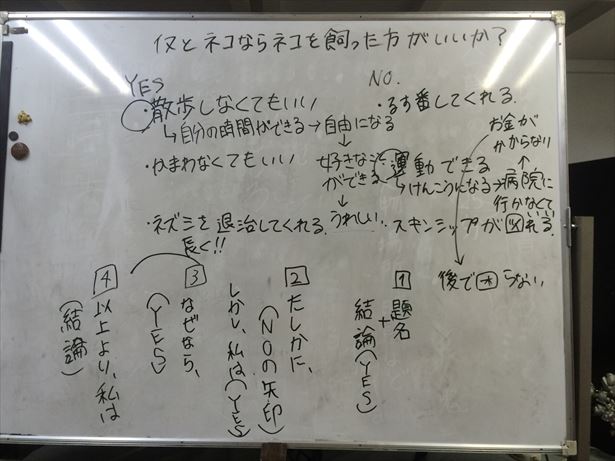 イヌとネコならネコを飼った方がいいか？
YES
・散歩しなくてもいい
↳自分の時間ができる→自由になる
↓
好きなことができる
↓
うれしい
・かまわなくてもいい
・ネズミを退治してくれる
NO.
・るす番してくれる
・運動できる
↳けんこうになる→病院に行かなくていい
↑
お金がかからない
・スキンシップが図れる
後で困らない
1 題名
+
結論(YES)
2 たしかに、
(NOの矢印)
しかし、私は(YES)
3 なぜなら、
(YES)
長く!!
4 以上より、私は
(結論)